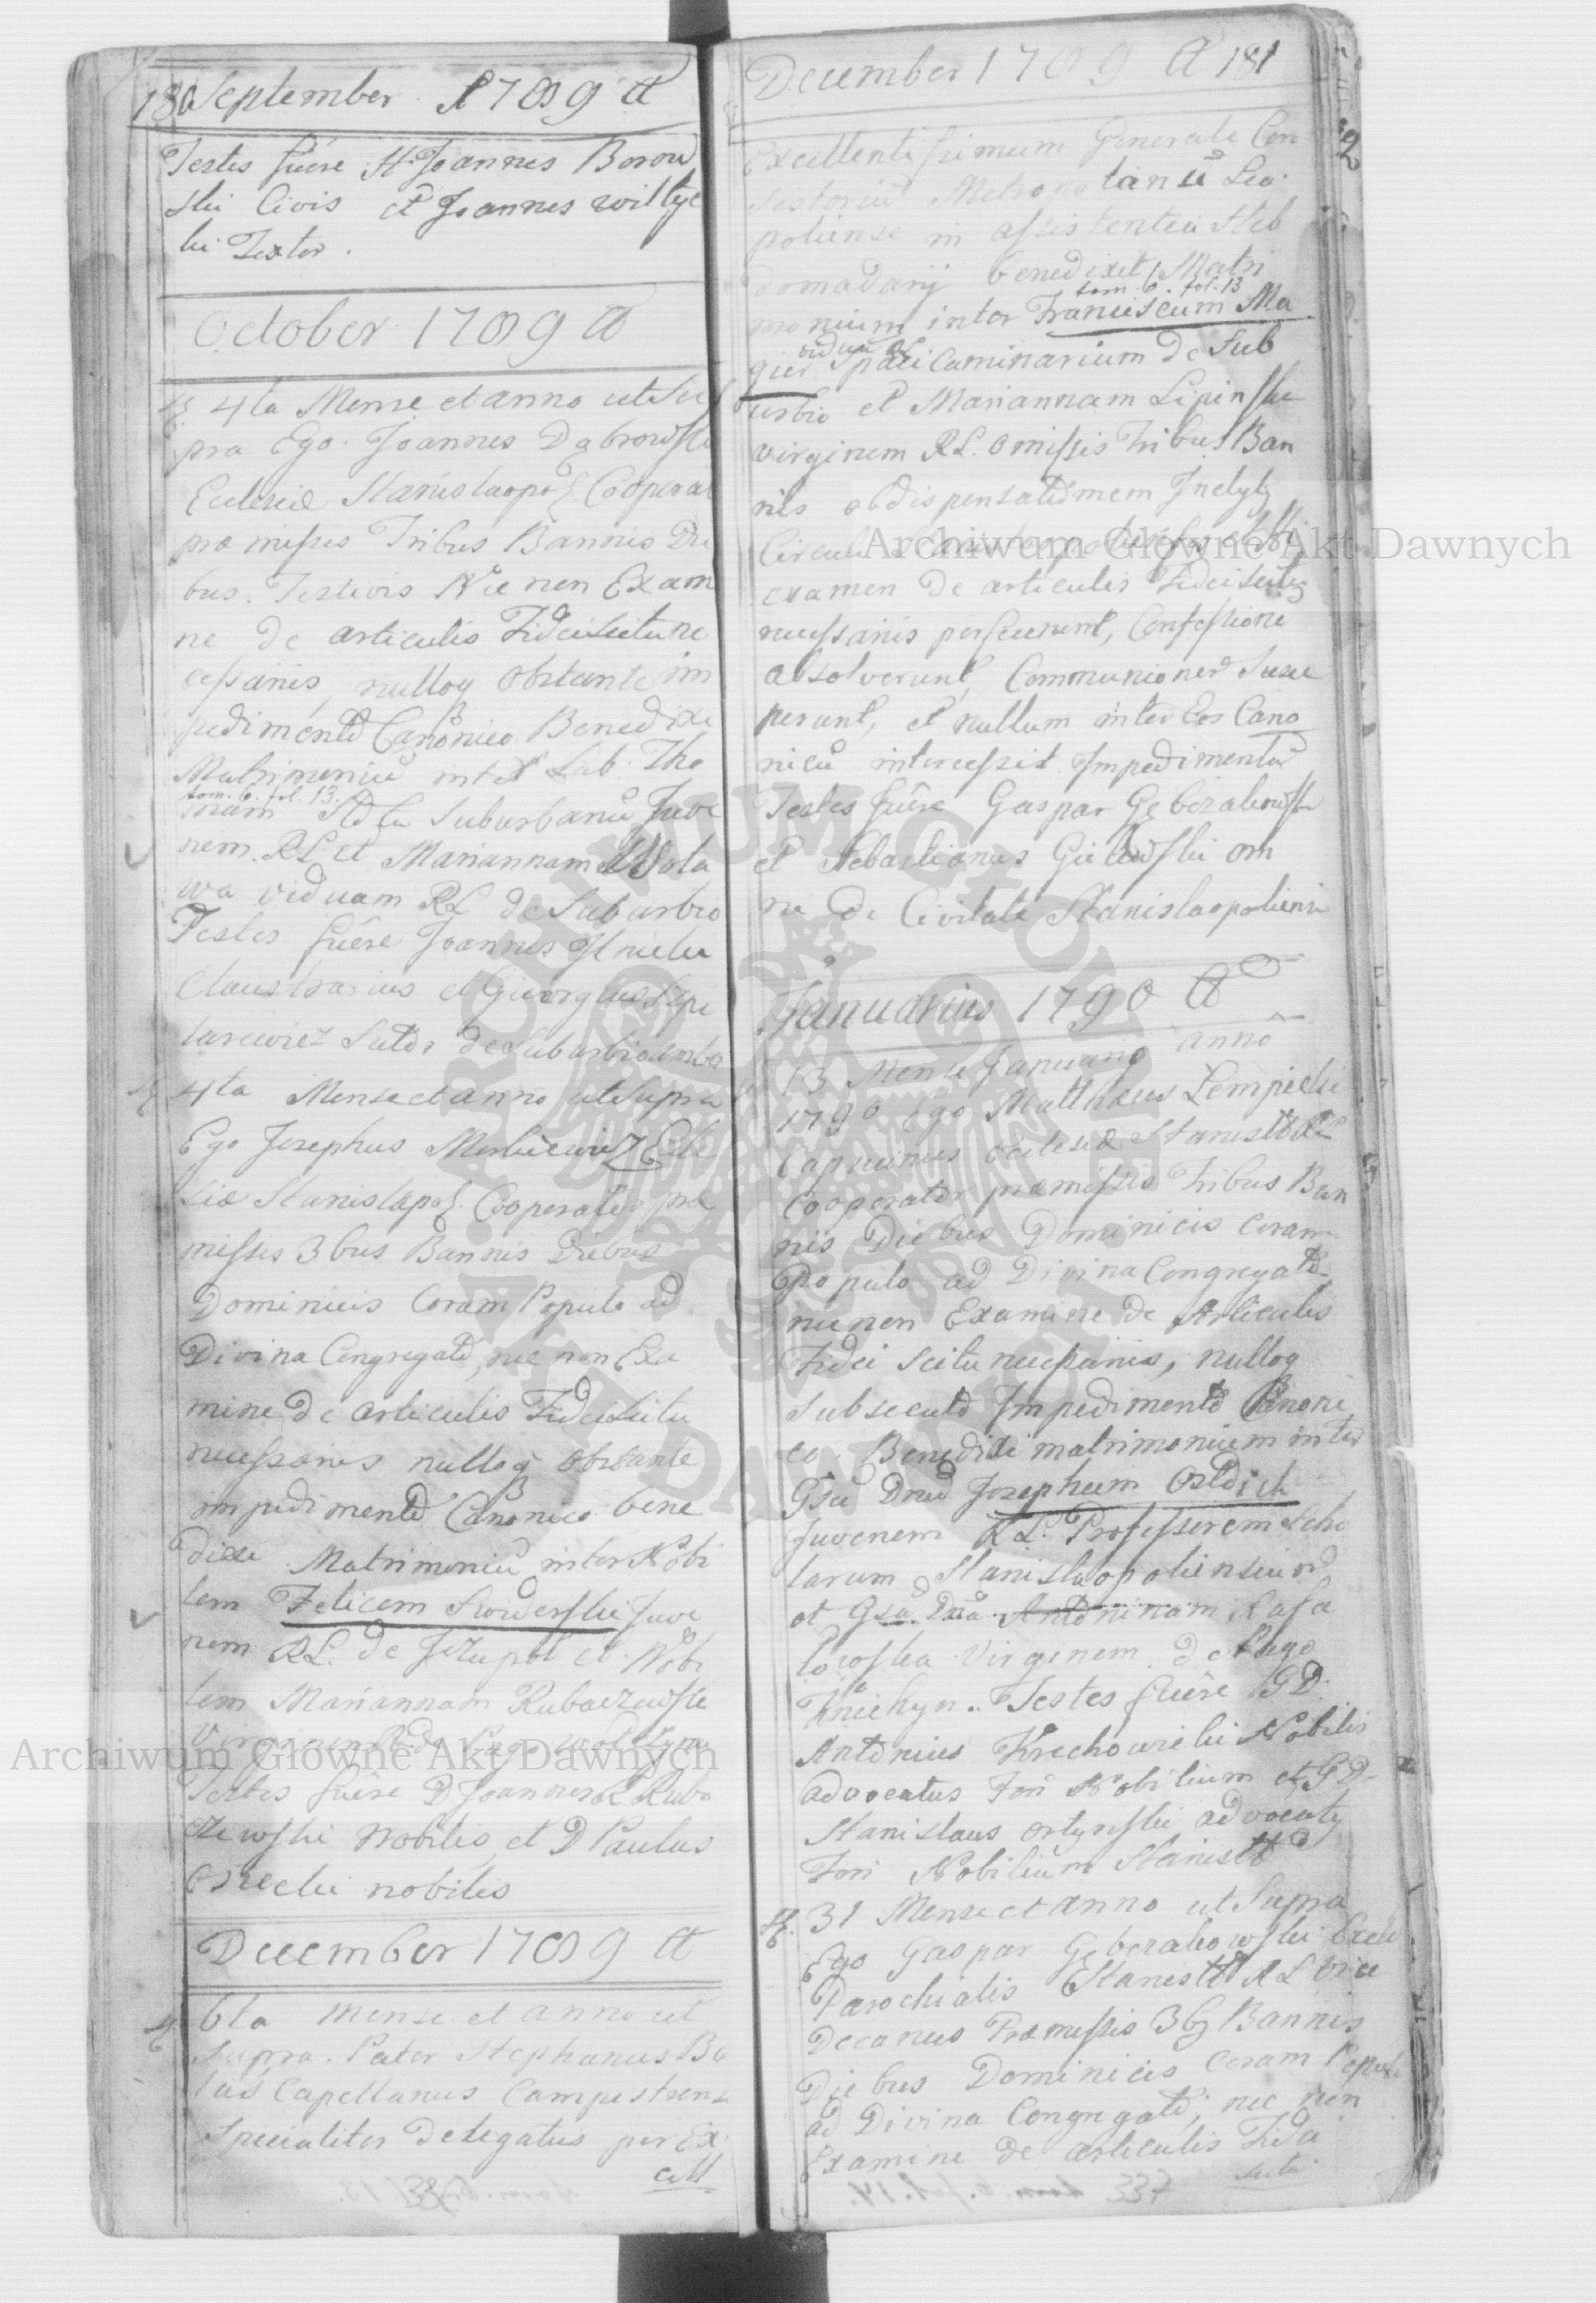 180 September A 1789 A
Testes fuere H. Joannes Borow
ski Civis et Joannes Wiltyc
ki Textor.
October 1789 A
4ta Mense et anno ut Su
pra Ego Joannes Dąbrowski
Eclesiæ Stanislaopol. Cooperat
præmissis Tribus Bannis Die
bus Festivis Nec non Exam
ne de articulis Fidei scitu ne
cessariis, nulloq obstante im
pedimento Canonico Benedixi
Matrimoniu inter Lab. Tho
tom. 6. fol. 13.
mam Suburbanu Juve
nem RL et Mariannam
wa viduam RL de Suburbio
Testes fuere Joannes
Claustrarius et Georgius
larewicz Sutor de Suburbio ambo
4ta Mense et anno ut Supra
Ego Josephus Eccle
siæ Stanislaopol. Cooperator præ
missis 3bus Bannis Diebus
Dominicis Coram Populo ad
Divina Congregato, nec non Exa
mine de articulis Fidei Scitu
necessariis nulloq obstante
impedimento Canonico bene
dixi Matrimoniu inter Nobi
lem Felicem Swiderski Juve
nem RL. de Jezupol et Nobi
lem Mariannam Kubaczewske
Virginem RL de Pago
Testes fuere D Joannes Kuba
czewski Nobilis, et D Paulus
nobilis
December 1789 A
6ta Mense et anno ut
Supra. Pater Stephanus Bo
Capellanus Campestrens
Specialiter Delegatus per Ex
cell
December 1789 A 181
Excellentissimum Generale Con
sistoriu Metropolitanu Leo
poliense in assistentia Heb
domadarij benedixit Matri
tom. 6. fol. 13
monium inter Franciscum Ma
viduu
gier Spaci Caminarium de Sub
urbio et Mariannam Lipinske
virginem RL. omissis Tribus Ban
nis ob dispensationem Inclyti
Circuli
examen de articulis Fidei scitu
necessariis persecerunt, Confessione
absolverunt, Communionem Susce
perunt, et nullum inter Eos Cano
nicu intercessit Impedimentu
Testes fuere Gaspar Gębczakowski
et Sebastianus om
ne de Civitate Stanislaopoliensi
Januarius 1790 A
13 Mense Januario anno
1790 Ego Matthæus Łempicki
Capucinus Eclesiæ
Cooperator præmissis Tribus Ban
nis Diebus Dominicis Coram
Populo ad Divina Congregato
nec non Examine de Articulis
Fidei Scitu necessariis, nulloq
Subsecuto Impedimento Canoni
co Benedixi matrimonium inter
Gsu Dnu Josephum Ostdich
Juvenem RL. Professorem Scho
larum Stanislaopoliensium
et Gsa Dna Antoninam Rafa
łowska Virginem de Pago
Kniehyn. Testes fuere GD
Antonius Krechowieki Nobilis
advocatus Fori Nobilium et GD
Stanislaus Ortynski advocaty
Fori Nobilium
31 Mense et anno ut Supra
Ego Gaspar Gębczakowski Eccle
Parochialis RL Vice
Decanus Præmissis 3bus Bannis
Diebus Dominicis Coram Populo
ad Divina Congregato, nec non
Examine de articulis Fidei
scitu
Archiwum Główne Akt Dawnych
Archiwum Główne Akt Dawnych